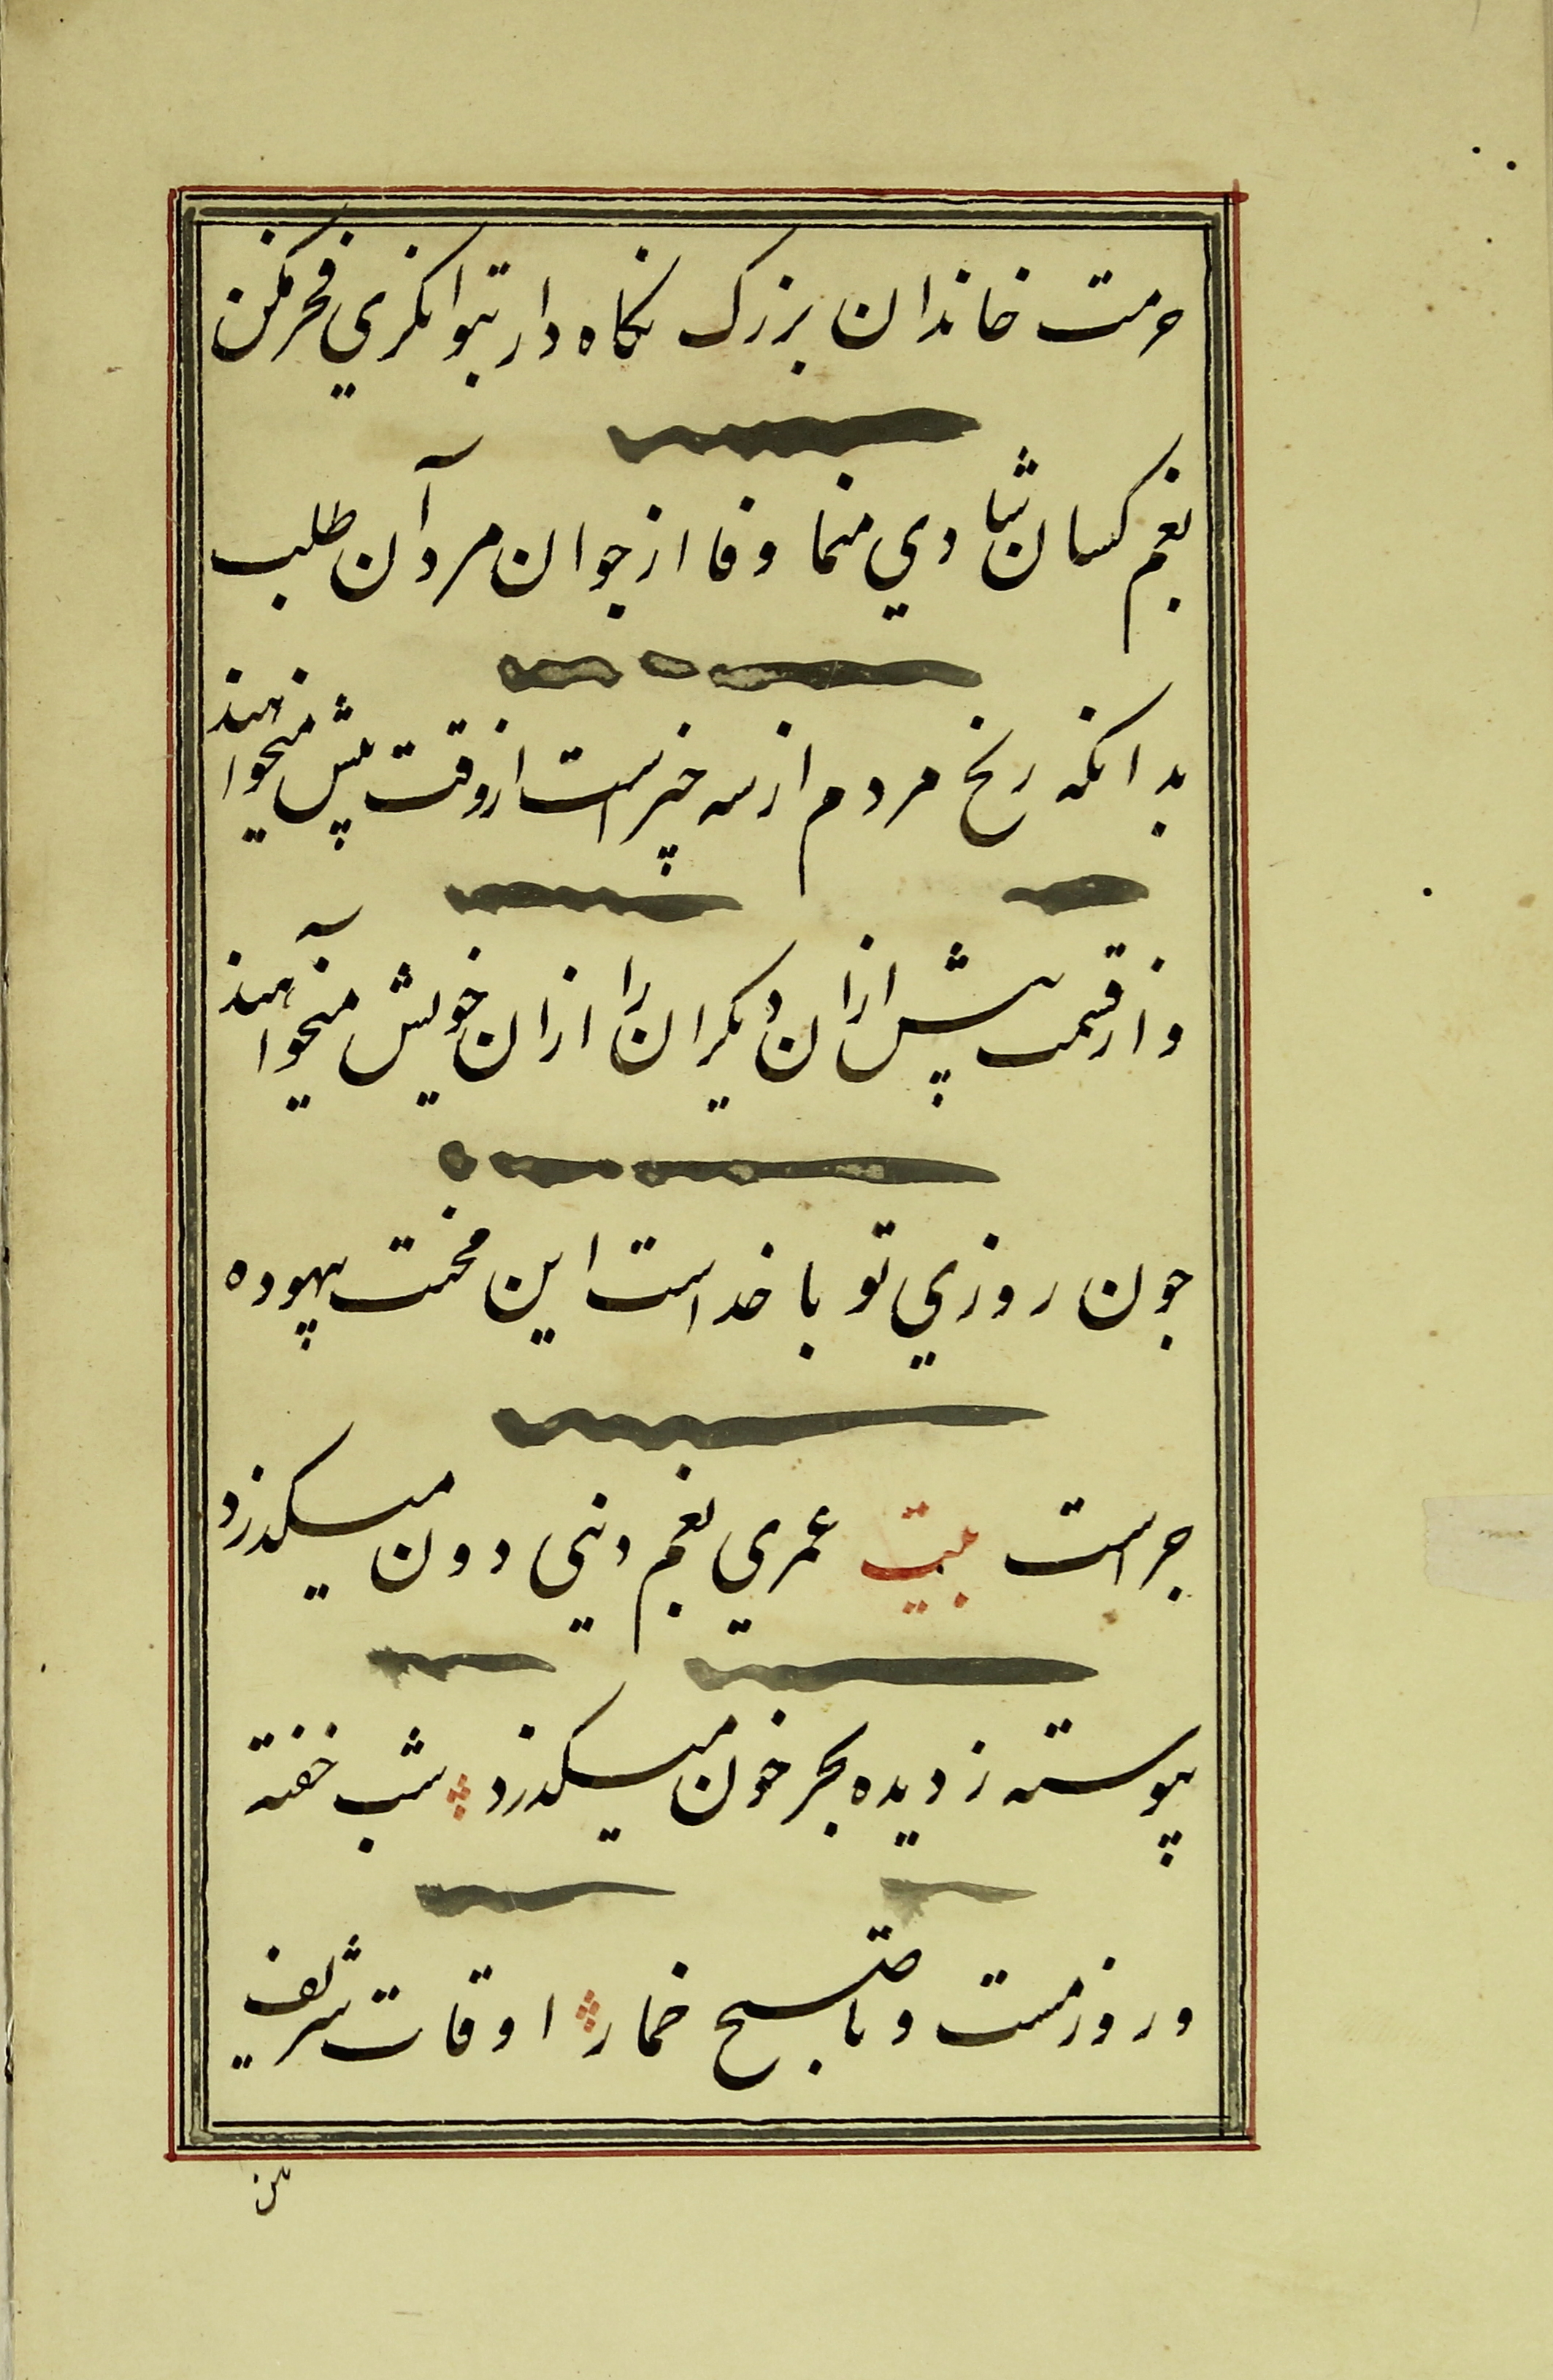 حرمت خاندان بزرک نکاه دار بتوانکري فخر مکن
بغم کسان شادي منما وفا از جوان مردآن طلب
بدانکه رنج مردم از سه چیز است از وقت پیش میخواهند
و از قسمت پیش ازان دیکران را ازان خویش میخوآهند
جون روزي تو با خداست این محنت بیهوده
جراست بیت عمري بغم دنیی دون میکذرد
پیوسته ز دیده بحر خون میکذرد شب خفته
و روز مست و با صبح خمار اوقات شریف